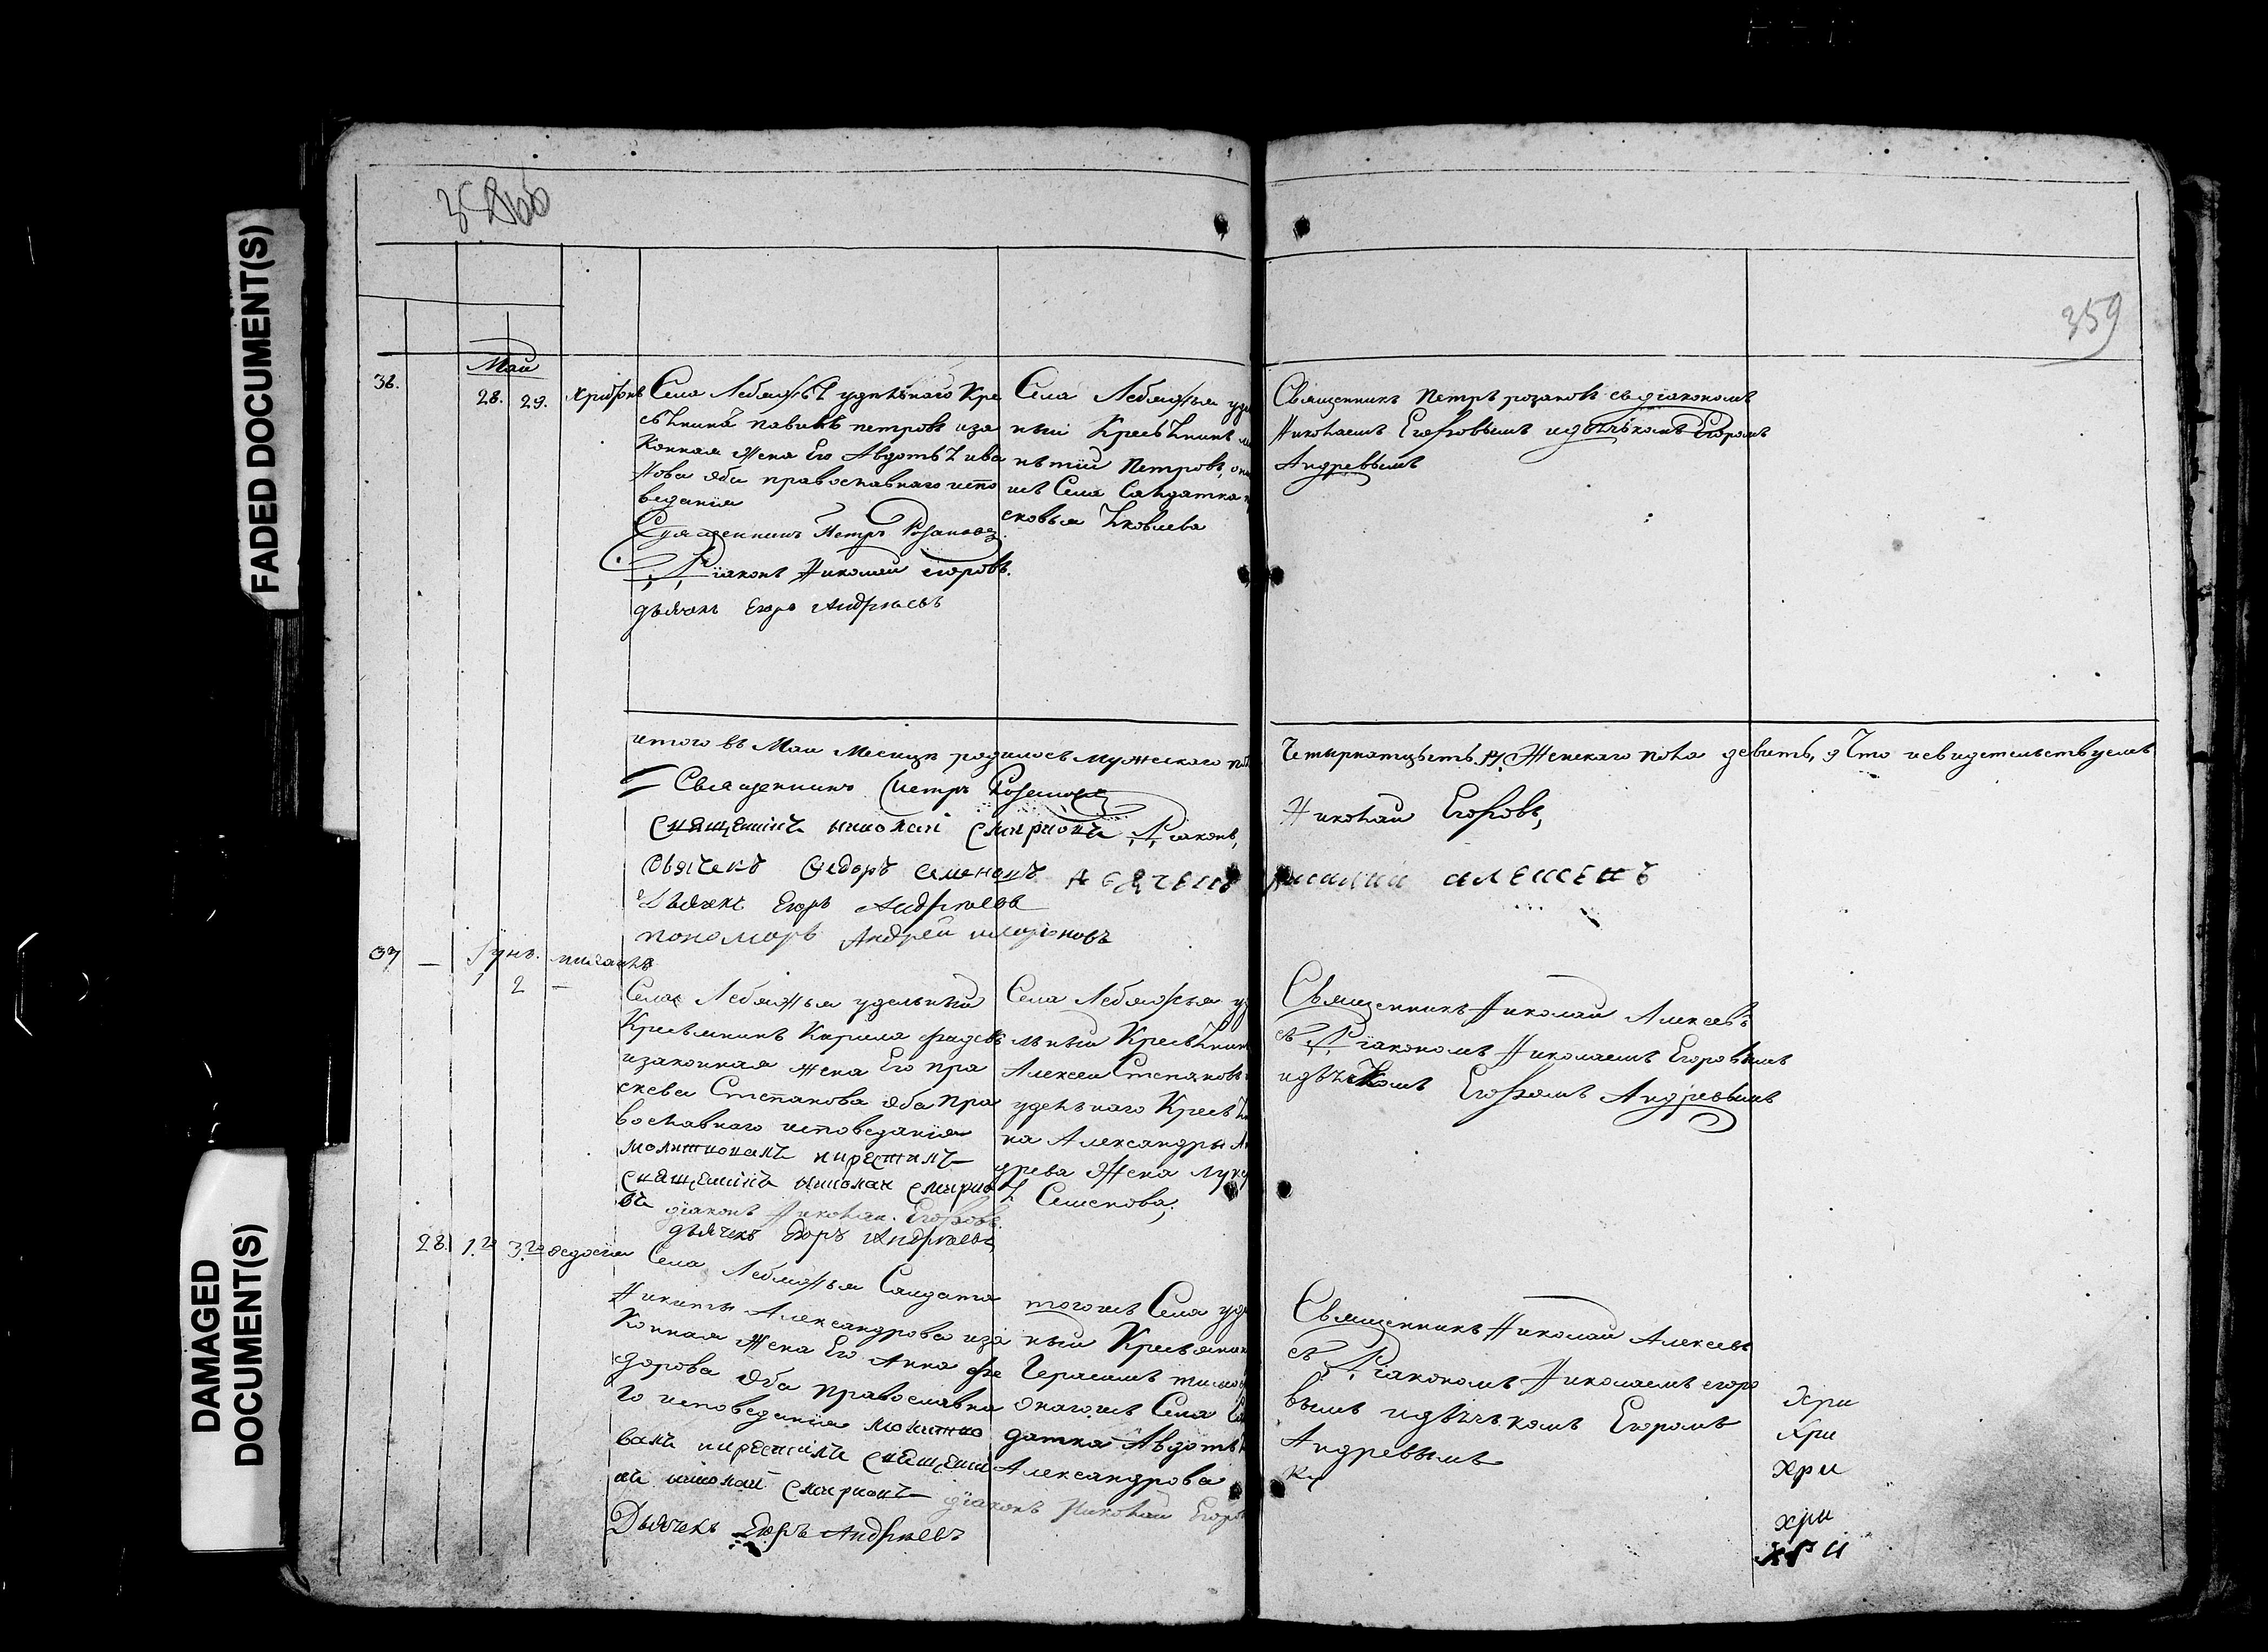 FADED DOCUMENT(S)
DAMAGED DOCUMENT(S)
359
Маи
36.
28. 29.
Села Лебяжья удѣльнаго Кре
сьянина павилъ петровъ иза
конная Жена Его Авдотья ива
нова оба православнаго испо
веданія
Священникъ Петръ Розановъ
Діаконъ Николай егоровъ.
дьячекъ Егоръ Андреевъ
Села Лебяжья уде
ный Кресьянинъ
Петровъ,
Села Салдатка
Яковлева
Священникъ Петръ розановъ съ діакономъ
Николаемъ Егоровымъ идьячкомъ Егоромъ
Андревымъ
итого въ Маи Месяце родилось мужескаго пол
Четырнатцеть 14, Женскаго пола девить, 9 Что исвидетельствуемъ
Священникъ Петръ Розановъ
священникъ николай смирновъ Діаконъ,
Николай Егоровъ,
дьячекъ Федоръ семеновъ
Дьячекъ Егоръ Андреевъ
пономарь Андрей
37 — Іунь.
1 2 —
Села Лебяжья удельный
Кресьянинъ Кирила фадеевъ
изаконная жена Его пра
скева Степанова оба пра
вославнаго исповеданія
молитвовалъ икрестилъ
священникъ николай смирно
въ діаконъ Николай Егоровъ.
дьячекъ Егоръ Андреевъ
Села Лебяжья уде
льный Кресьянинъ
Алексеи Степановъ
уделнаго Кресья
на Александры Ан
древа Жена Луке
я Семенова;
Священникъ Николай Алексеевъ
съ Діакономъ Николаемъ Егоровымъ
идьячкомъ Егоромъ Андревымъ
28. 1.го 3.го федосия
Села Лебяжья Салдата
Никиты Александрова иза
конная Жена Его Анна фе
дорова оба православна
го исповеданія молитво
валъ икрестилъ священни
къ николай смирновъ діаконъ Николай Егоро
Дьячекъ Егоръ Андреевъ
тогожъ Села уде
ный Кресьянин
Герасимъ тимо
онагожъ Села Сал
датка Авдотья
Александрова
Священникъ Николай Алексеевъ
съ Діакономъ Николаемъ егоро
вымъ идьячькомъ Егоромъ
Андревымъ
хри
хри
хри
хри
хри